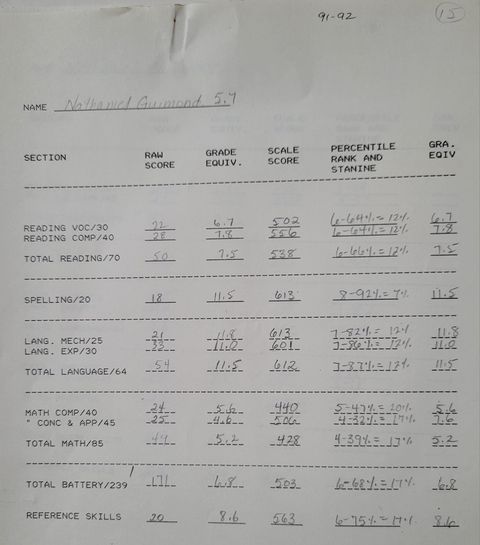 91-92 15
NAME Nathaniel Guimond 5.7
SECTION RAW SCORE GRADE EQUIV. SCALE SCORE PERCENTILE RANK AND STANINE GRA. EQIV
READING VOC/30 22 6.7 502 6-64%=12% 6.7
READING COMP/40 28 7.8 556 6-64%=12% 7.8
TOTAL READING/70 50 7.5 538 6-66%=12% 7.5
SPELLING/20 18 11.5 613 8-92%=7% 11.5
LANG. MECH/25 21 11.8 613 7-82%=12% 11.8
LANG. EXP/30 33 11.0 601 7-86%=12% 11.0
TOTAL LANGUAGE/64 54 11.5 612 7-87%=12% 11.5
MATH COMP/40 24 5.6 440 5-47%=20% 5.6
" CONC & APP/45 25 4.6 4-32%=17%
TOTAL MATH/85 49 5.2 428 4-39%=17% 5.2
TOTAL BATTERY/239 171 6.8 503 6-68%=17% 6.8
REFERENCE SKILLS 20 8.6 563 6-75%=17% 8.6